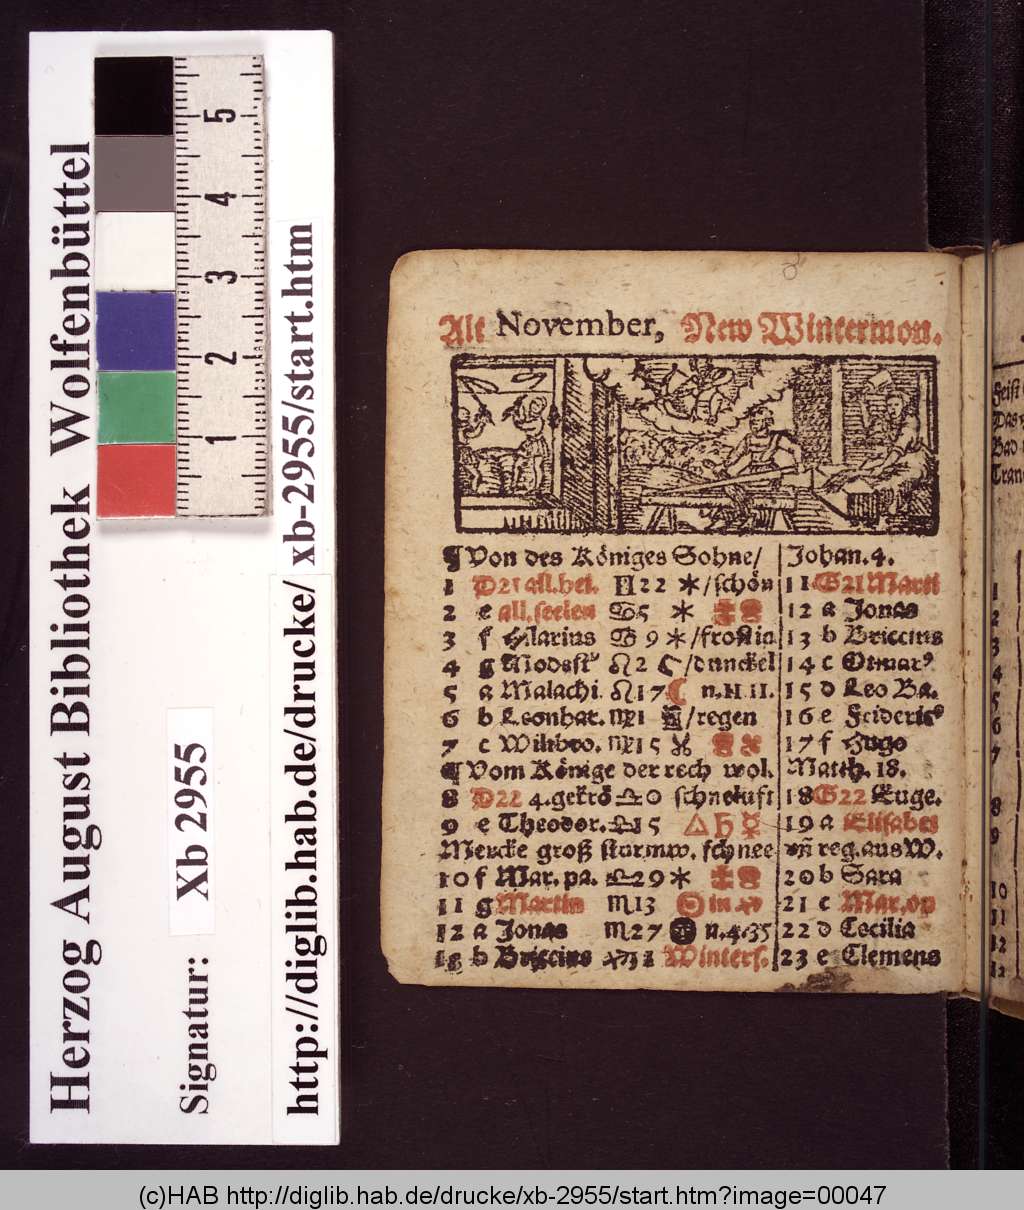 Herzog August Bibliothek Wolfenbüttel
Signatur: Xb 2955
http://diglib.hab.de/drucke/xb-2955/start.htm
1 2 3 4 5
Alt November, New Wintermon.
¶ Von des Königes Sohne/ Johan. 4.
1 D21 all. hei. ♊ 22 ✶/schön 11 G21 Marti
2 e all. seelen ♋ 5 ✶ 12 a Jonas
3 f Hilarius ♋ 9 ✶/frostig 13 b Briccius
4 g Modestꝰ ♌ 2 ☾/dunckel 14 c Otmarꝰ
5 a Malachi. ♌ 17 ☾ n. 11. 11. 15 d Leo Ba.
6 b Leonhar. ♍ 1 /regen 16 e Friderieꝰ
7 c Wilibro. ♍ 15 17 f Hugo
¶ Vom Könige der rech wol. Matth. 18.
8 D22 4. gekrö ♎ 0 schneluft 18 G22 Euge.
9 e Theodor. ♎ 15 △ ♄ ☿ 19 a Elisabet
Mercke groß sturmw. schnee vñ reg. aus W.
10 f Mar. pa. ♎ 29 ✶ 20 b Sara
11 g Martin ♏ 13 ☉ in ♐ 21 c Mar. op
12 a Jonas ♏ 27 n. 4. 35 22 d Cecilia
13 b Briccius ♐ 11 Winters. 23 e Clemens
Feist
Bad
1
2
3
4
5
6
7
8
9
10
11
12
(c)HAB http://diglib.hab.de/drucke/xb-2955/start.htm?image=00047